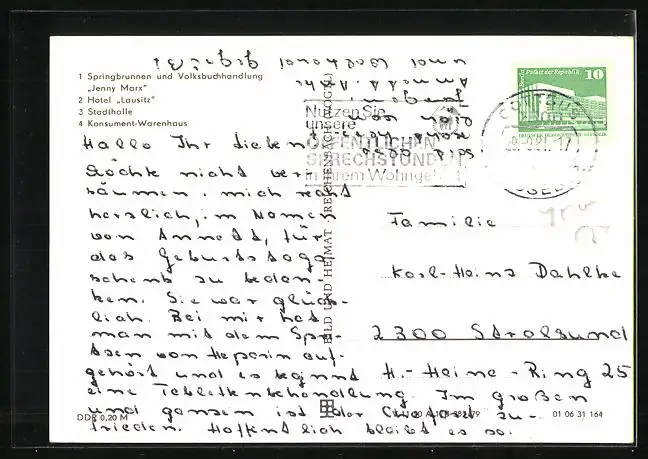 1 Springbrunnen und Volksbuchhandlung
„Jenny Marx"
2 Hotel „Lausitz"
3 Stadthalle
4 Konsument-Warenhaus
Hallo Ihr Lieben
möchte nicht ver-
säumen, mich recht
herzlich, im Namen
von Annett, für
das Geburtstagsge-
schenk zu bedan-
ken. Sie war glück-
lich. Bei mir hat
man mit dem Spri-
tzen von Heparin auf-
gehört und es beginnt
eine Tablettenbehandlung. Im großen
und ganzen ist der Chefarzt zu-
frieden. Hoffentlich bleibt es so.
und
Nutzen Sie
unsere
ÖFFENTLICHEN
SPRECHSTUNDEN
in Ihrem Wohngebiet
BILD UND HEIMAT · REICHENBACH (VOGTL)
Palast der Republik 10
COTTBUS
Familie
Karl-Heinz Dahlke
2300 Stralsund
H.-Heine-Ring 25
DDR 0,20 M
01 06 31 164